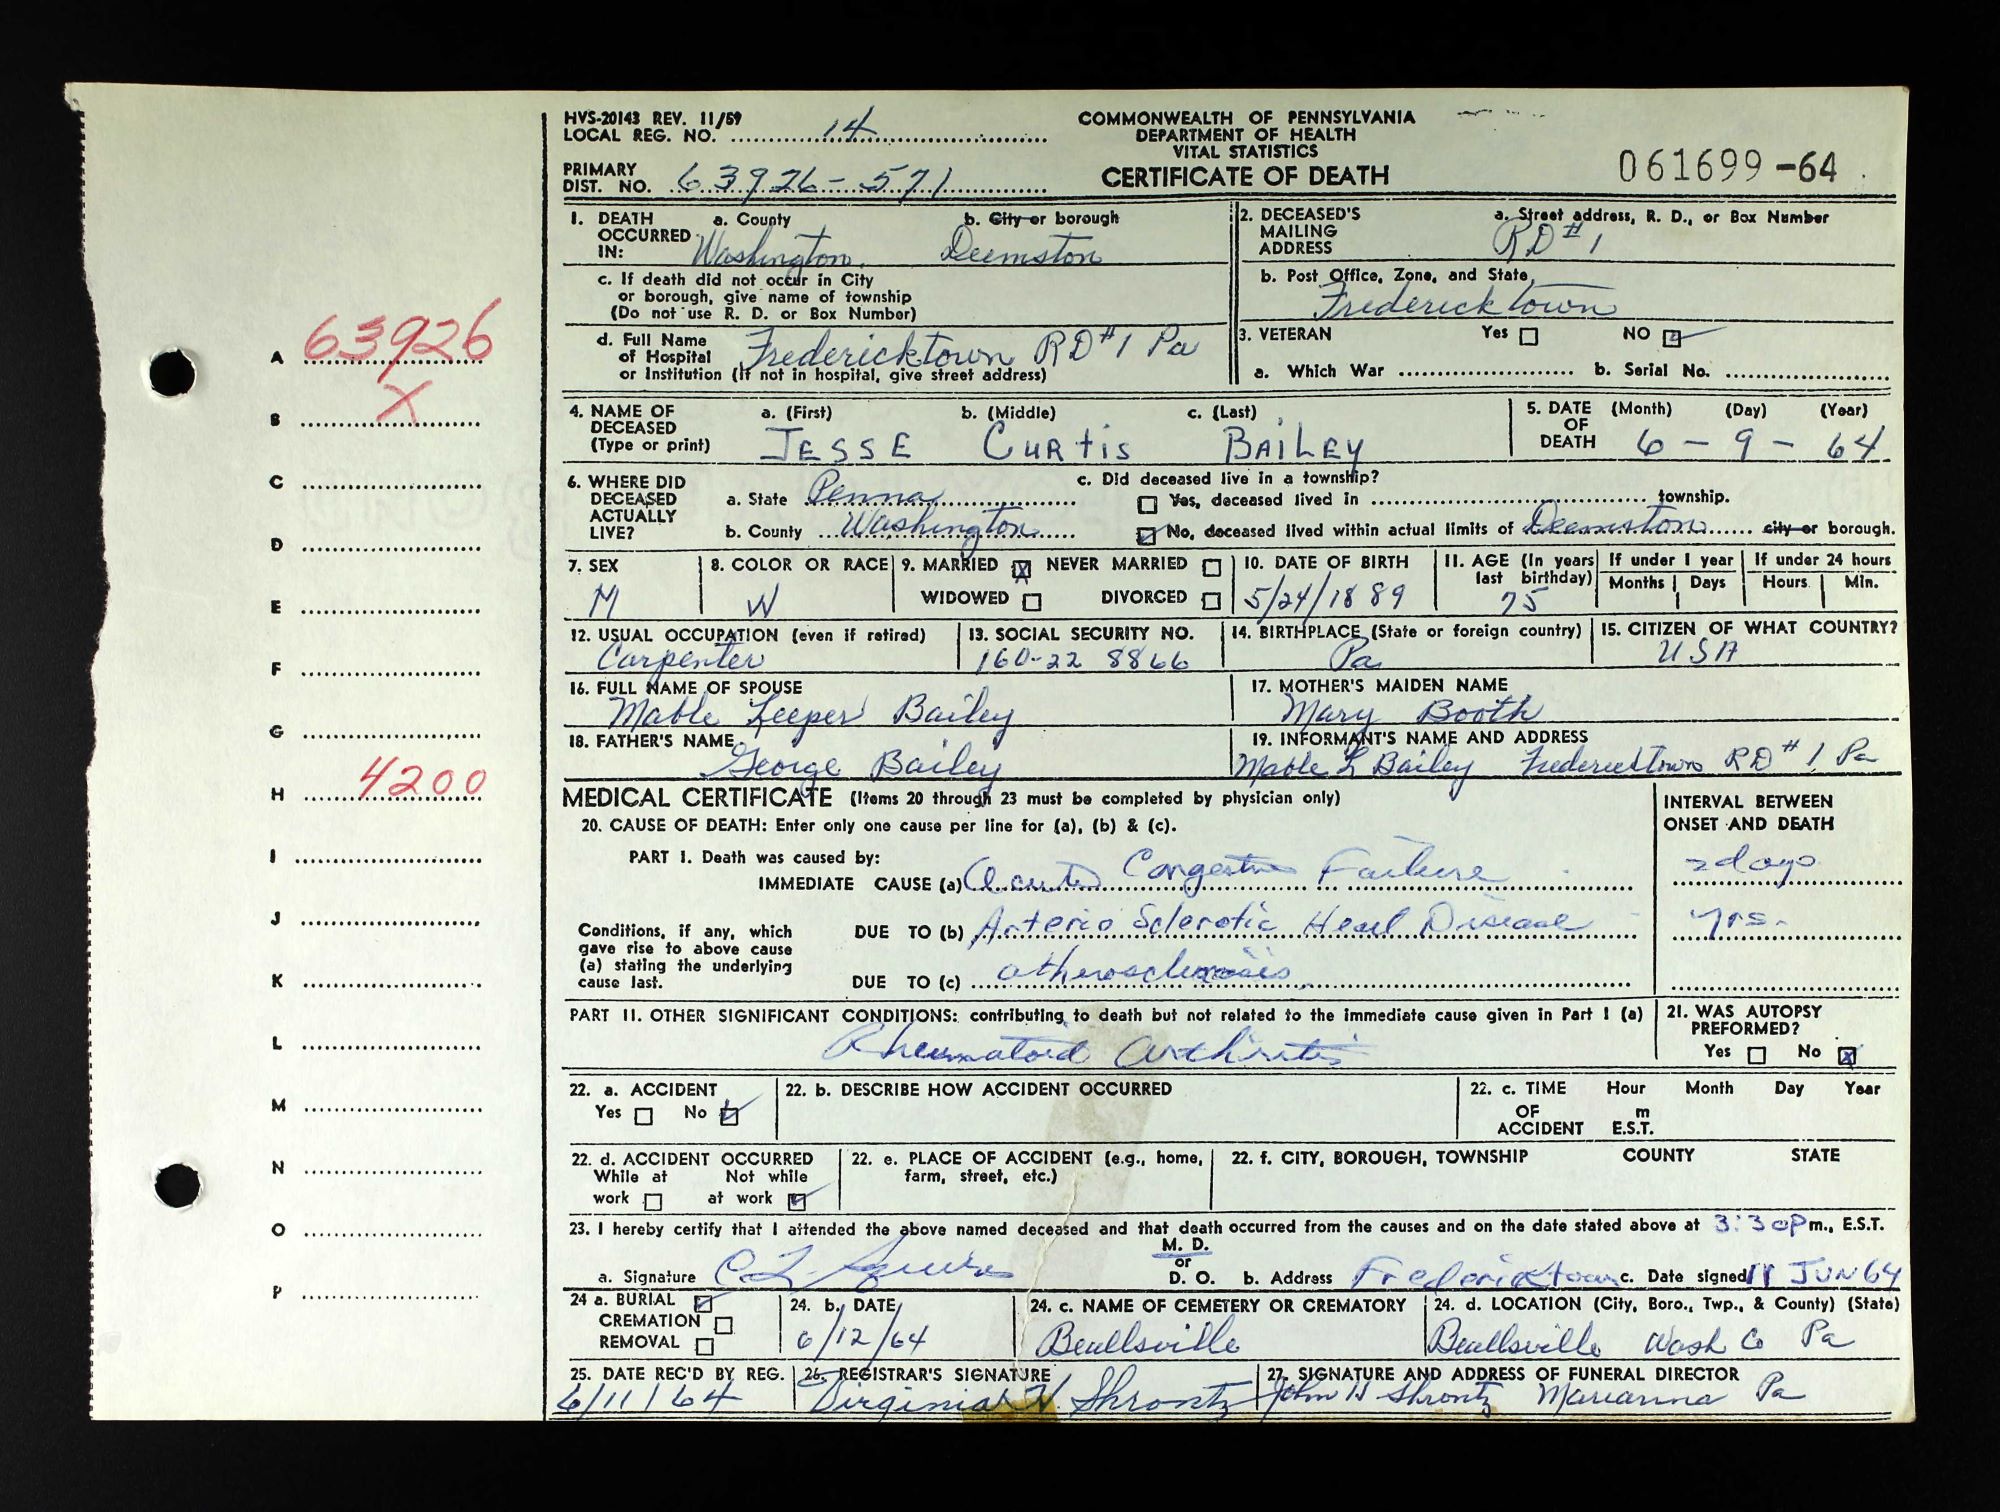 HVS-20143 REV. 11/59
LOCAL REG. NO. 14
PRIMARY DIST. NO. 63926-571
COMMONWEALTH OF PENNSYLVANIA
DEPARTMENT OF HEALTH
VITAL STATISTICS
CERTIFICATE OF DEATH
061699-64
A 63926
B X
C
D
E
F
G
H 4200
I
J
K
L
M
N
O
P
1. DEATH OCCURRED IN: a. County Washington b. City or borough Deemston
c. If death did not occur in City
or borough, give name of township
(Do not use R. D. or Box Number)
d. Full Name of Hospital or Institution (If not in hospital, give street address) Fredericktown RD#1 Pa
2. DECEASED'S MAILING ADDRESS a. Street address, R. D., or Box Number RD #1
b. Post Office, Zone, and State, Fredericktown
3. VETERAN Yes NO
a. Which War b. Serial No.
4. NAME OF DECEASED (Type or print) a. (First) JESSE b. (Middle) CURtis c. (Last) BAiLEY
5. DATE OF DEATH (Month) (Day) (Year) 6 - 9 - 64
6. WHERE DID DECEASED ACTUALLY LIVE? a. State Penna
b. County Washington
c. Did deceased live in a township?
Yes, deceased lived in township.
No, deceased lived within actual limits of Deemston city or borough.
7. SEX M
8. COLOR OR RACE W
9. MARRIED X NEVER MARRIED
WIDOWED DIVORCED
10. DATE OF BIRTH 5/24/1889
11. AGE (In years last birthday) 75
If under 1 year Months Days
If under 24 hours Hours Min.
12. USUAL OCCUPATION (even if retired) Carpenter
13. SOCIAL SECURITY NO. 160-22 8866
14. BIRTHPLACE (State or foreign country) Pa
15. CITIZEN OF WHAT COUNTRY? USA
16. FULL NAME OF SPOUSE Mable Leeper Bailey
17. MOTHER'S MAIDEN NAME Mary Booth
18. FATHER'S NAME George Bailey
19. INFORMANT'S NAME AND ADDRESS Mable L Bailey Fredericktown RD #1 Pa
MEDICAL CERTIFICATE (Items 20 through 23 must be completed by physician only)
20. CAUSE OF DEATH: Enter only one cause per line for (a), (b) & (c).
INTERVAL BETWEEN ONSET AND DEATH
PART I. Death was caused by:
IMMEDIATE CAUSE (a) Acute Congestive Failure 2 days
Conditions, if any, which
gave rise to above cause
(a) stating the underlying
cause last.
DUE TO (b) Arterio Sclerotic Heart Disease yrs.
DUE TO (c) atherosclerosis
PART 11. OTHER SIGNIFICANT CONDITIONS: contributing to death but not related to the immediate cause given in Part I (a)
Rheumatoid Arthritis
21. WAS AUTOPSY PREFORMED?
Yes No X
22. a. ACCIDENT
Yes No
22. b. DESCRIBE HOW ACCIDENT OCCURRED
22. c. TIME OF ACCIDENT Hour m E.S.T. Month Day Year
22. d. ACCIDENT OCCURRED
While at work Not while at work
22. e. PLACE OF ACCIDENT (e.g., home, farm, street, etc.)
22. f. CITY, BOROUGH, TOWNSHIP COUNTY STATE
23. I hereby certify that I attended the above named deceased and that death occurred from the causes and on the date stated above at 3:30 P m., E.S.T.
a. Signature C L M. D. or D. O. b. Address Fredericktown c. Date signed 11 JUN 64
24 a. BURIAL
CREMATION
REMOVAL
24. b. DATE 6/12/64
24. c. NAME OF CEMETERY OR CREMATORY Beallsville
24. d. LOCATION (City, Boro., Twp., & County) (State) Beallsville Wash Co Pa
25. DATE REC'D BY REG. 6/11/64
26. REGISTRAR'S SIGNATURE Virginia H. Shrontz
27. SIGNATURE AND ADDRESS OF FUNERAL DIRECTOR John H Shrontz Marianna Pa